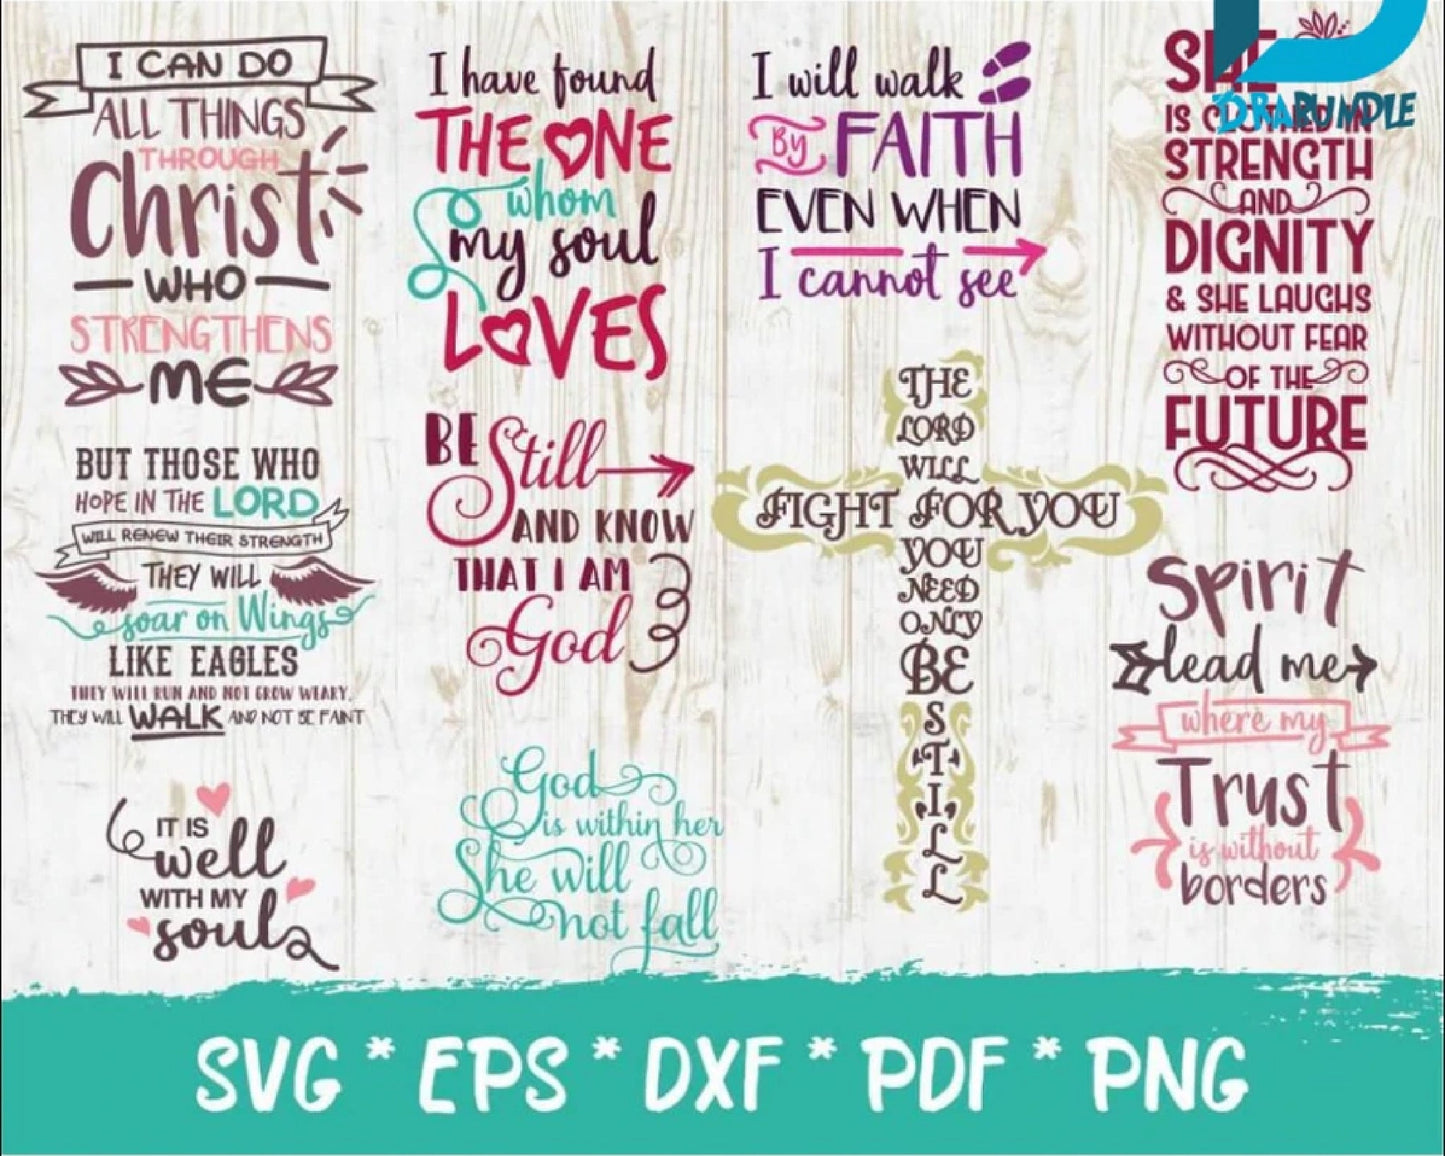 I CAN DO
ALL THINGS
THROUGH
Christ
WHO
STRENGTHENS
ME
I have found
THE ONE
whom
my soul
LOVES
I will walk
By FAITH
EVEN WHEN
I cannot see
SHE
IS CLOTHED IN
STRENGTH
AND
DIGNITY
& SHE LAUGHS
WITHOUT FEAR
OF THE
FUTURE
BUT THOSE WHO
HOPE IN THE LORD
WILL RENEW THEIR STRENGTH
THEY WILL
soar on Wings
LIKE EAGLES
THEY WILL RUN AND NOT GROW WEARY,
THEY WILL WALK AND NOT BE FAINT
BE Still
AND KNOW
THAT I AM
God
THE
LORD
WILL
FIGHT FOR YOU
YOU
NEED
ONLY
BE
S
T
I
L
L
Spirit
lead me
where my
Trust
is without
borders
IT IS
well
WITH MY
soul
God
is within her
She will
not fall
SVG * EPS * DXF * PDF * PNG